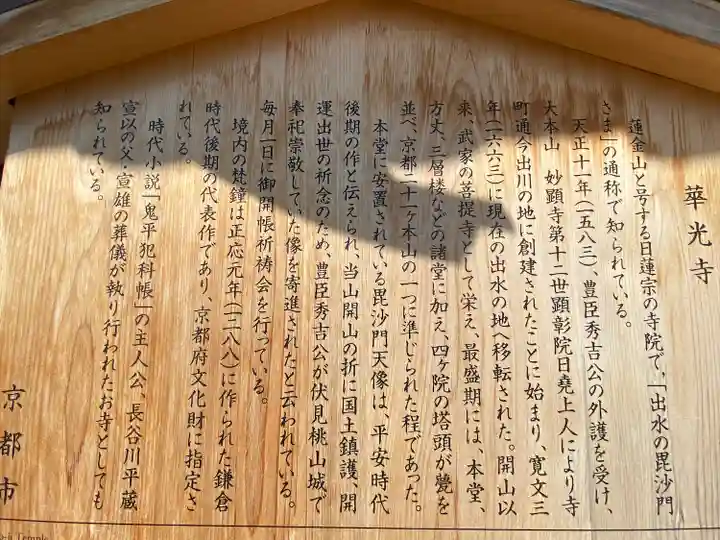 華光寺
蓮金山と号する日蓮宗の寺院で、「出水の毘沙門
さま」の通称で知られている。
天正十一年(一五八三)、豊臣秀吉公の外護を受け、
大本山 妙顕寺第十二世顕彰院日堯上人により寺
町通今出川の地に創建されたことに始まり、寛文三
年(一六六三)に現在の出水の地へ移転された。開山以
来、武家の菩提寺として栄え、最盛期には、本堂、
方丈、三層楼などの諸堂に加え、四ヶ院の塔頭が甍を
並べ、京都二十一ヶ本山の一つに準じられた程であった。
本堂に安置されている毘沙門天像は、平安時代
後期の作と伝えられ、当山開山の折に国土鎮護、開
運出世の祈念のため、豊臣秀吉公が伏見桃山城で
奉祀崇敬していた像を寄進されたと云われている。
毎月一日に御開帳祈祷会を行っている。
境内の梵鐘は正応元年(一二八八)に作られた鎌倉
時代後期の代表作であり、京都府文化財に指定さ
れている。
時代小説「鬼平犯科帳」の主人公、長谷川平蔵
宣以の父・宣雄の葬儀が執り行われたお寺としても
知られている。
京都市
Temple